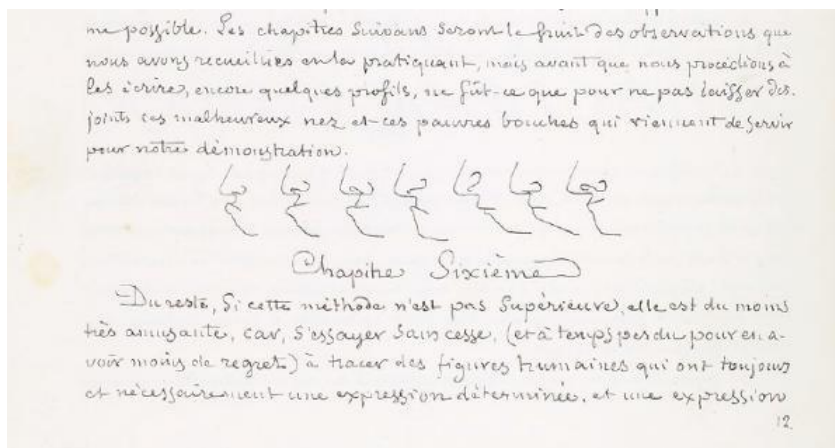 me possible. Les chapitres suivans seront le fruit des observations que
nous avons recueillies en la pratiquant, mais avant que nous procédions à
les écrire, encore quelques profils, ne fût-ce que pour ne pas laisser dis-
joints ces malheureux nez et ces pauvres bouches qui viennent de servir
pour notre démonstration.
Chapitre Sixième
Du reste, si cette méthode n'est pas supérieure, elle est du moins
très amusante, car, s'essayer sans cesse, (et à temps perdu pour en a-
voir moins de regret) à tracer des figures humaines qui ont toujours
et nécessairement une expression déterminée, et une expression
12.